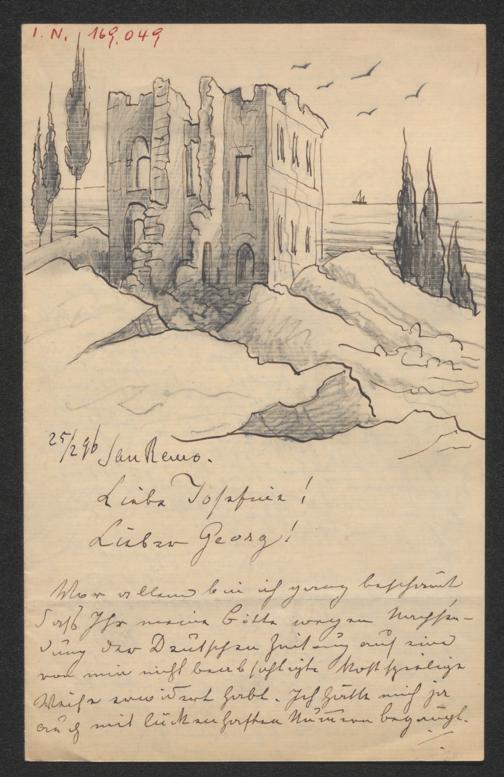 I. N. 169.049
25/2 96 San Remo.
Liebe Josefine!
Lieber Georg!
Vor allem bin ich ganz beschämt
daß Ihr meine Bitte wegen Nachsen-
dung der Deutschen Zeitung auf eine
von mir nicht beabsichtigte kostspielige
Weise erwidert habt. Ich hätte mich ja
auch mit lückenhaften Nummern begnügt.